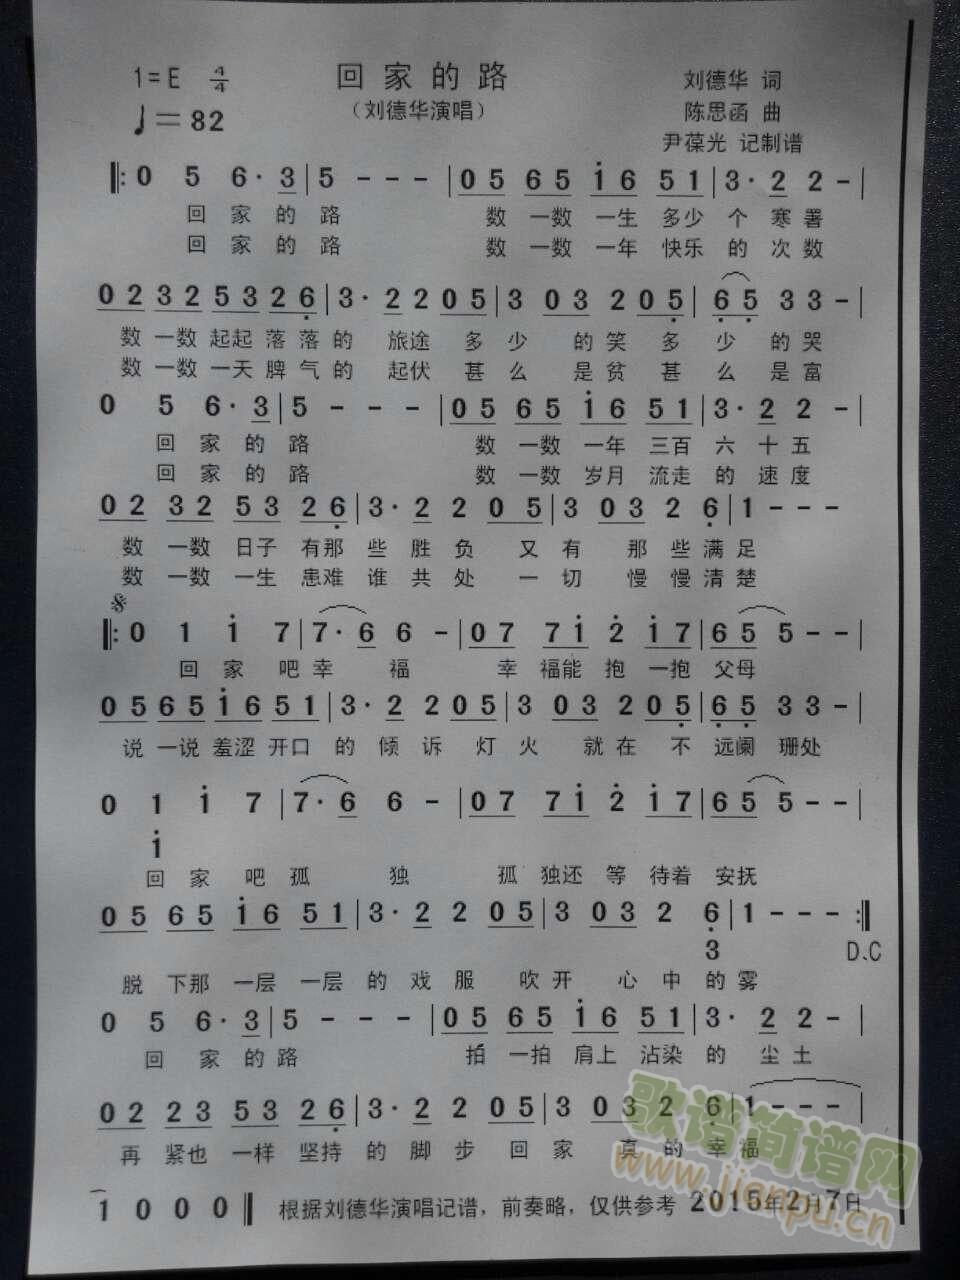 1=E 4/4 回家的路 刘德华 词
♩=82 (刘德华演唱) 陈思函 曲
尹葆光 记制谱
‖: 0 5 6· 3 | 5 - - - | 0 5 6 5 i 6 5 1 | 3· 2 2 - |
回 家 的 路 数 一数 一生 多少 个 寒 署
回 家 的 路 数 一数 一年 快乐 的 次 数
0 2 3 2 5 3 2 6 | 3· 2 2 0 5 | 3 0 3 2 0 5 | 6 5 3 3 - |
数 一数 起起 落 落 的 旅途 多 少 的 笑 多 少 的 哭
数 一数 一天 脾 气 的 起伏 甚 么 是 贫 甚 么 是 富
0 5 6· 3 | 5 - - - | 0 5 6 5 i 6 5 1 | 3· 2 2 - |
回 家 的 路 数 一数 一年 三百 六 十 五
回 家 的 路 数 一数 岁月 流走 的 速 度
0 2 3 2 5 3 2 6 | 3· 2 2 0 5 | 3 0 3 2 6 | 1 - - -
数 一数 日子 有那 些 胜 负 又 有 那 些 满 足
数 一数 一生 患难 谁 共 处 一 切 慢 慢 清 楚
‖: 0 1 i 7 | 7· 6 6 - | 0 7 7 i 2 i 7 | 6 5 5 - - |
回 家 吧 幸 福 幸 福能 抱 一抱 父母
0 5 6 5 i 6 5 1 | 3· 2 2 0 5 | 3 0 3 2 0 5 | 6 5 3 3 - |
说 一说 羞涩 开口 的 倾 诉 灯 火 就 在 不 远阑 珊处
0 1 i 7 | 7· 6 6 - | 0 7 7 i 2 i 7 | 6 5 5 - - |
i
回 家 吧 孤 独 孤 独还 等 待着 安抚
0 5 6 5 i 6 5 1 | 3· 2 2 0 5 | 3 0 3 2 6 | 1 - - - :‖
3 D、C
脱 下那 一层 一层 的 戏 服 吹 开 心 中 的 雾
0 5 6· 3 | 5 - - - | 0 5 6 5 i 6 5 1 | 3· 2 2 - |
回 家 的 路 拍 一拍 肩上 沾染 的 尘 土
0 2 2 3 5 3 2 6 | 3· 2 2 0 5 | 3 0 3 2 6 | 1 - - - |
再 紧也 一样 坚持 的 脚 步 回 家 真 的 幸 福
1 0 0 0 ‖ 根据刘德华演唱记谱，前奏略，仅供参考 2015年2月7日
歌谱简谱网
www.jianpu.cn